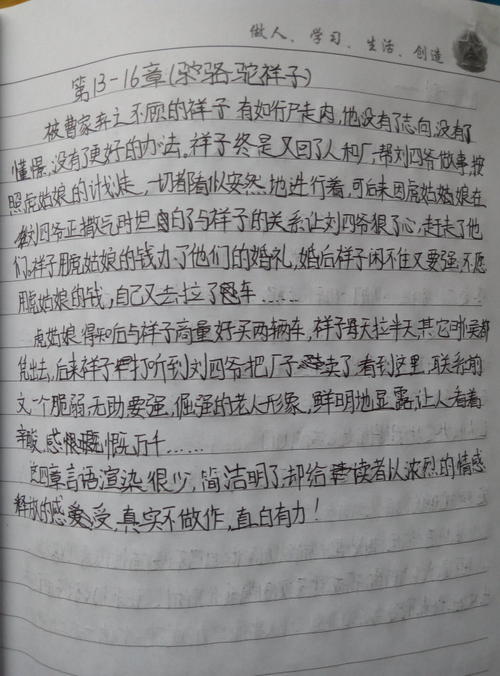 做人、学习、生活、创造
第13-16章(骆驼祥子)
被曹家弃之不顾的祥子 有如行尸走肉,他没有了志向,没有了
憧憬,没有了更好的办法。祥子终是又回了人和厂,帮刘四爷做事,按
照虎姑娘的计划走,一切都看似安然地进行着,可后来因虎姑娘在
刘四爷正撒气时坦白了与祥子的关系,让刘四爷狠了心,赶走了他
们,祥子用虎姑娘的钱办了他们的婚礼,婚后祥子闲不住又要强,不愿
用虎姑娘的钱,自己又去拉了车……
虎姑娘得知后与祥子商量好买两辆车,祥子每天拉半天,其它时候都
出去,后来祥子打听到刘四爷把厂子卖了,看到这里,联系前
文一个脆弱无助要强,倔强的老人形象,鲜明地显露,让人看着
辛酸,感慨万千……
这四章言语渲染很少,简洁明了,却给读者以浓烈的情感
释放的感受,真实不做作,直白有力!